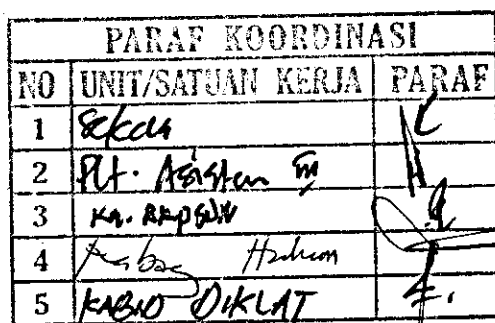 PARAF KOORDINASI
NO UNIT/SATUAN KERJA PARAF
1 Sekda
2 Plt. Asisten III
3 Ka. BKPSDM
4 Kabag Hukum
5 KABID DIKLAT